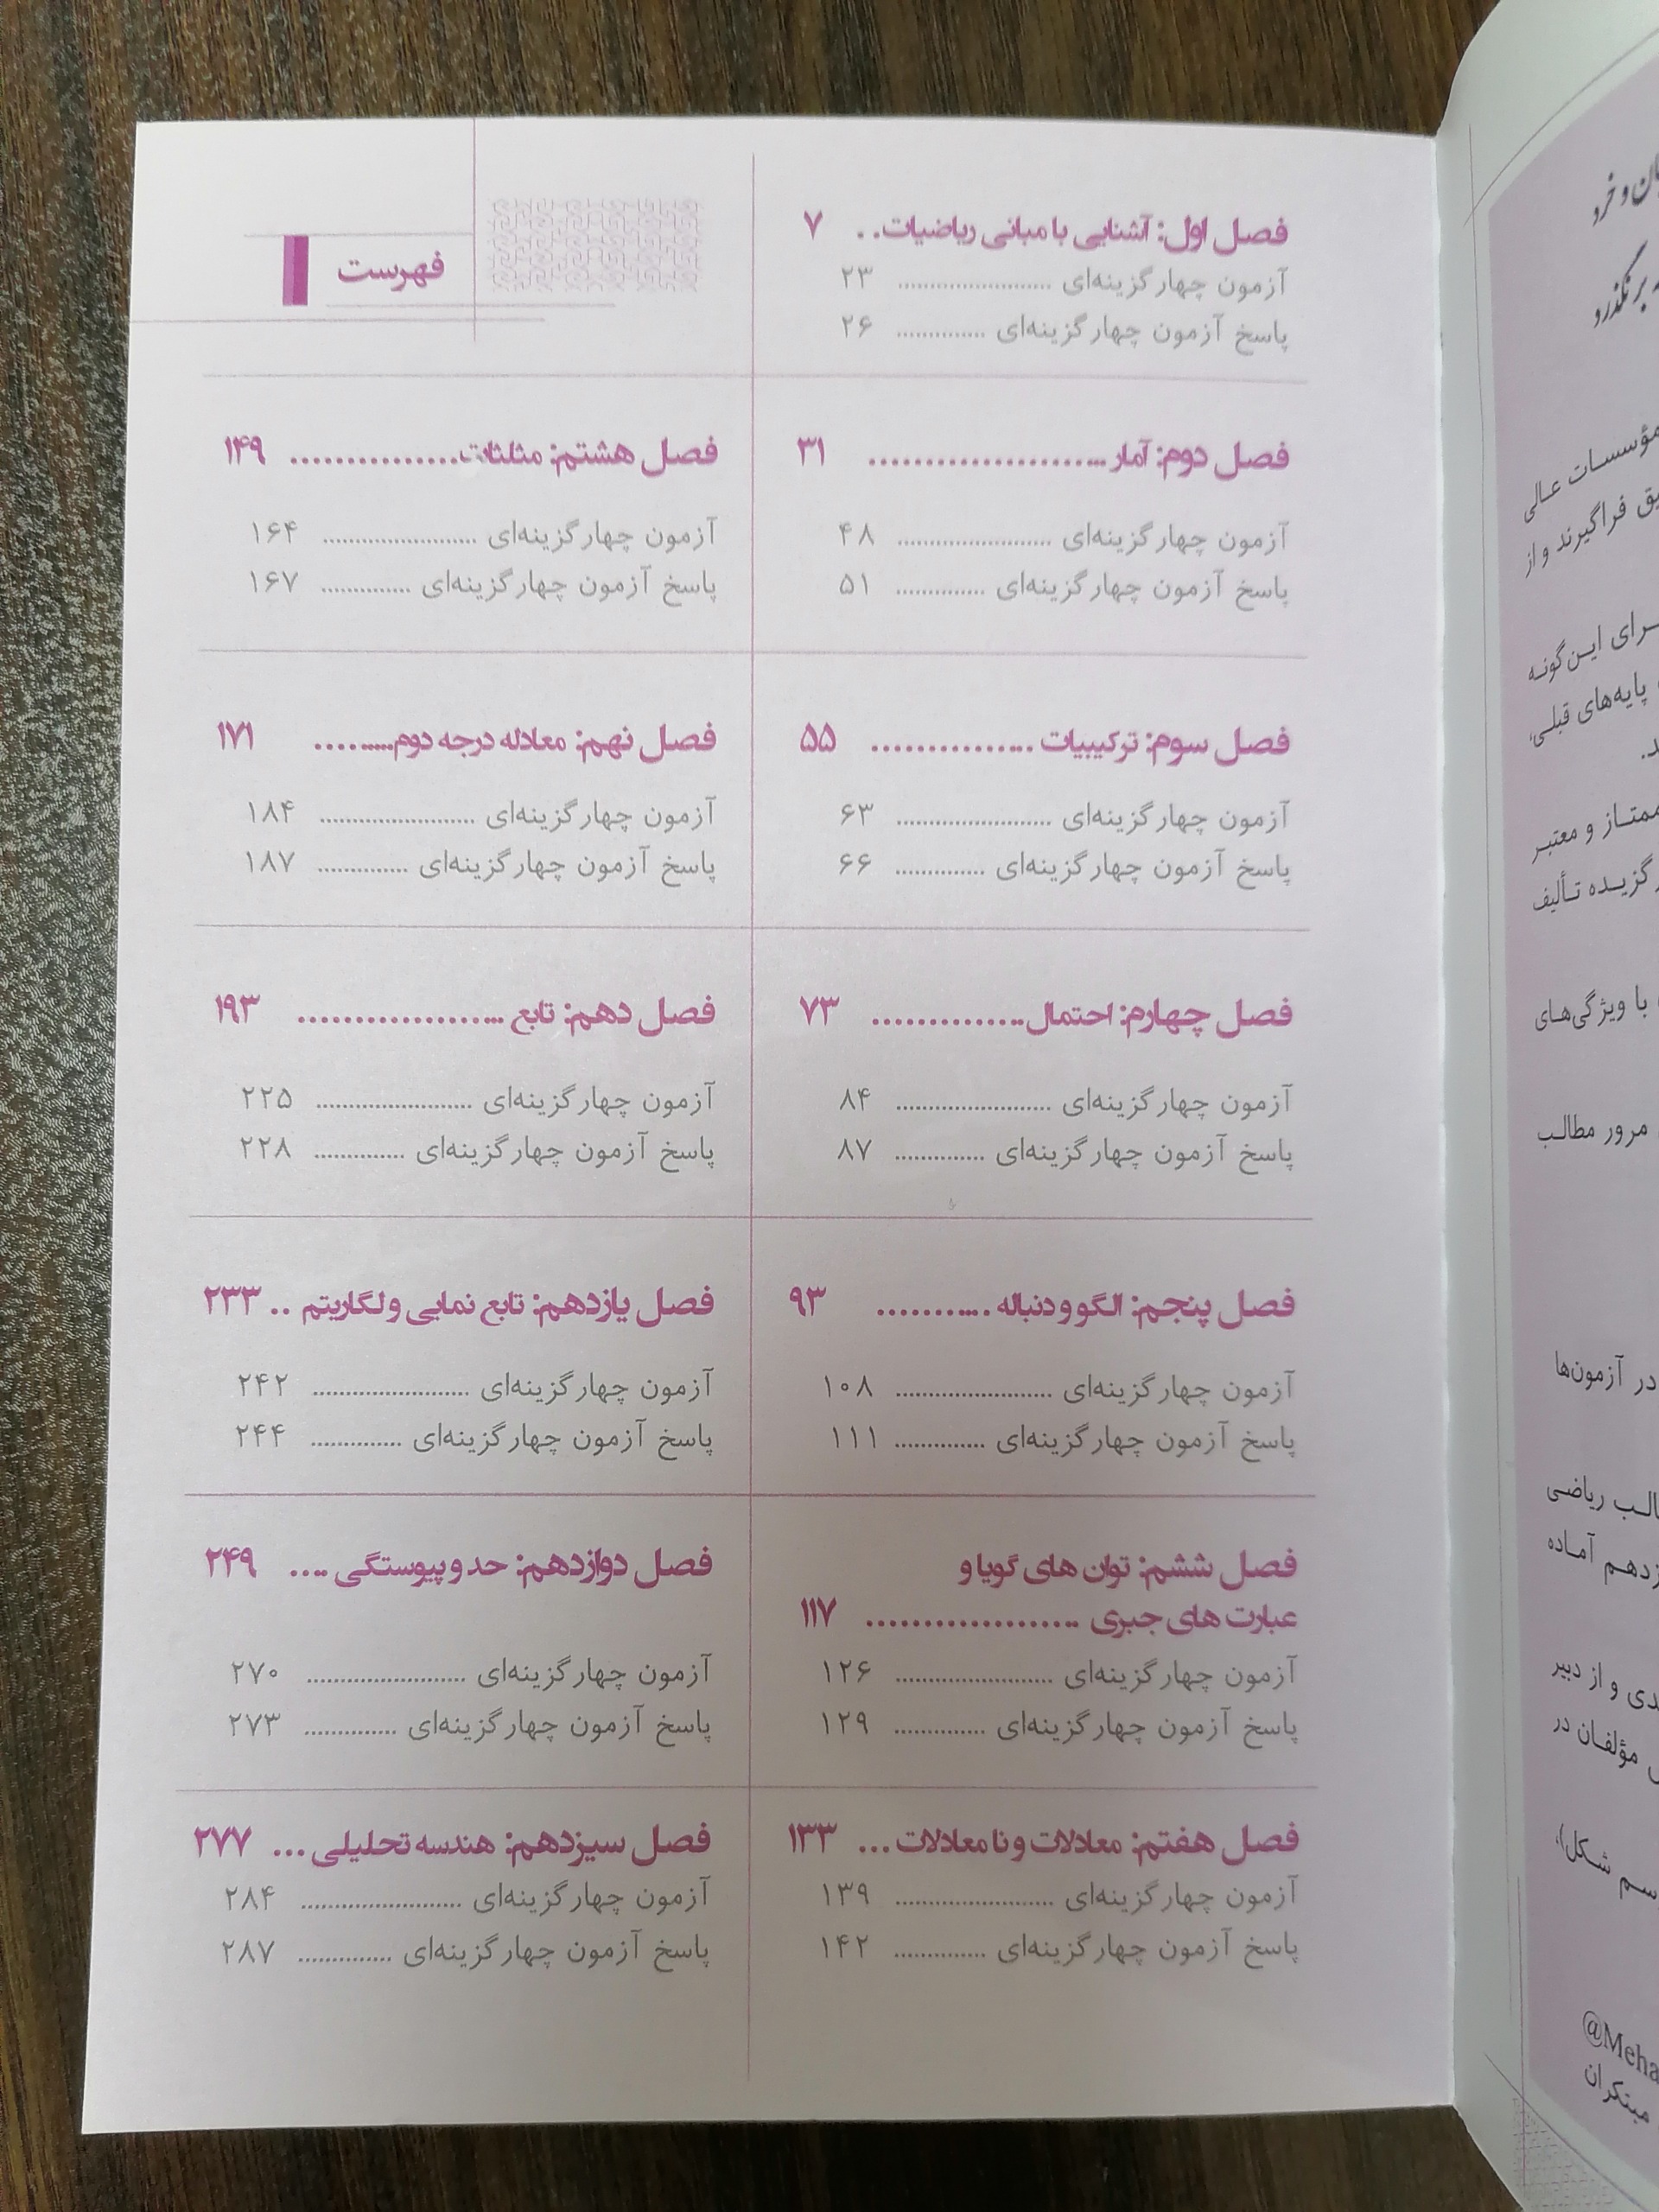 فهرست
فصل اول: آشنایی با مبانی ریاضیات.. ۷
آزمون چهارگزینه‌ای ........................ ۲۳
پاسخ آزمون چهارگزینه‌ای .............. ۲۶
فصل دوم: آمار ..................... ۳۱
آزمون چهارگزینه‌ای ........................ ۴۸
پاسخ آزمون چهارگزینه‌ای .............. ۵۱
فصل سوم: ترکیبیات ................ ۵۵
آزمون چهارگزینه‌ای ........................ ۶۳
پاسخ آزمون چهارگزینه‌ای .............. ۶۶
فصل چهارم: احتمال............... ۷۳
آزمون چهارگزینه‌ای ........................ ۸۴
پاسخ آزمون چهارگزینه‌ای .............. ۸۷
فصل پنجم: الگو و دنباله ........... ۹۳
آزمون چهارگزینه‌ای ........................ ۱۰۸
پاسخ آزمون چهارگزینه‌ای .............. ۱۱۱
فصل ششم: توان های گویا و
عبارت های جبری ................... ۱۱۷
آزمون چهارگزینه‌ای ........................ ۱۲۶
پاسخ آزمون چهارگزینه‌ای .............. ۱۲۹
فصل هفتم: معادلات و نا معادلات... ۱۳۳
آزمون چهارگزینه‌ای ........................ ۱۳۹
پاسخ آزمون چهارگزینه‌ای .............. ۱۴۲
فصل هشتم: مثلثات................ ۱۴۹
آزمون چهارگزینه‌ای ........................ ۱۶۴
پاسخ آزمون چهارگزینه‌ای .............. ۱۶۷
فصل نهم: معادله درجه دوم......... ۱۷۱
آزمون چهارگزینه‌ای ........................ ۱۸۴
پاسخ آزمون چهارگزینه‌ای .............. ۱۸۷
فصل دهم: تابع .................... ۱۹۳
آزمون چهارگزینه‌ای ........................ ۲۲۵
پاسخ آزمون چهارگزینه‌ای .............. ۲۲۸
فصل یازدهم: تابع نمایی و لگاریتم .. ۲۳۳
آزمون چهارگزینه‌ای ........................ ۲۴۲
پاسخ آزمون چهارگزینه‌ای .............. ۲۴۴
فصل دوازدهم: حد و پیوستگی .... ۲۴۹
آزمون چهارگزینه‌ای ........................ ۲۷۰
پاسخ آزمون چهارگزینه‌ای .............. ۲۷۳
فصل سیزدهم: هندسه تحلیلی ... ۲۷۷
آزمون چهارگزینه‌ای ........................ ۲۸۴
پاسخ آزمون چهارگزینه‌ای .............. ۲۸۷
و خرد
بر نگذرد
مؤسسات عالی
فراگیرند و از
این‌گونه
پایه‌های قبلی،
ممتاز و معتبر
تألیف
با ویژگی‌های
مرور مطالب
در آزمون‌ها
ریاضی
آماده
و از دبیر
مؤلفان در
شکل)،
@Meha
مبتکران